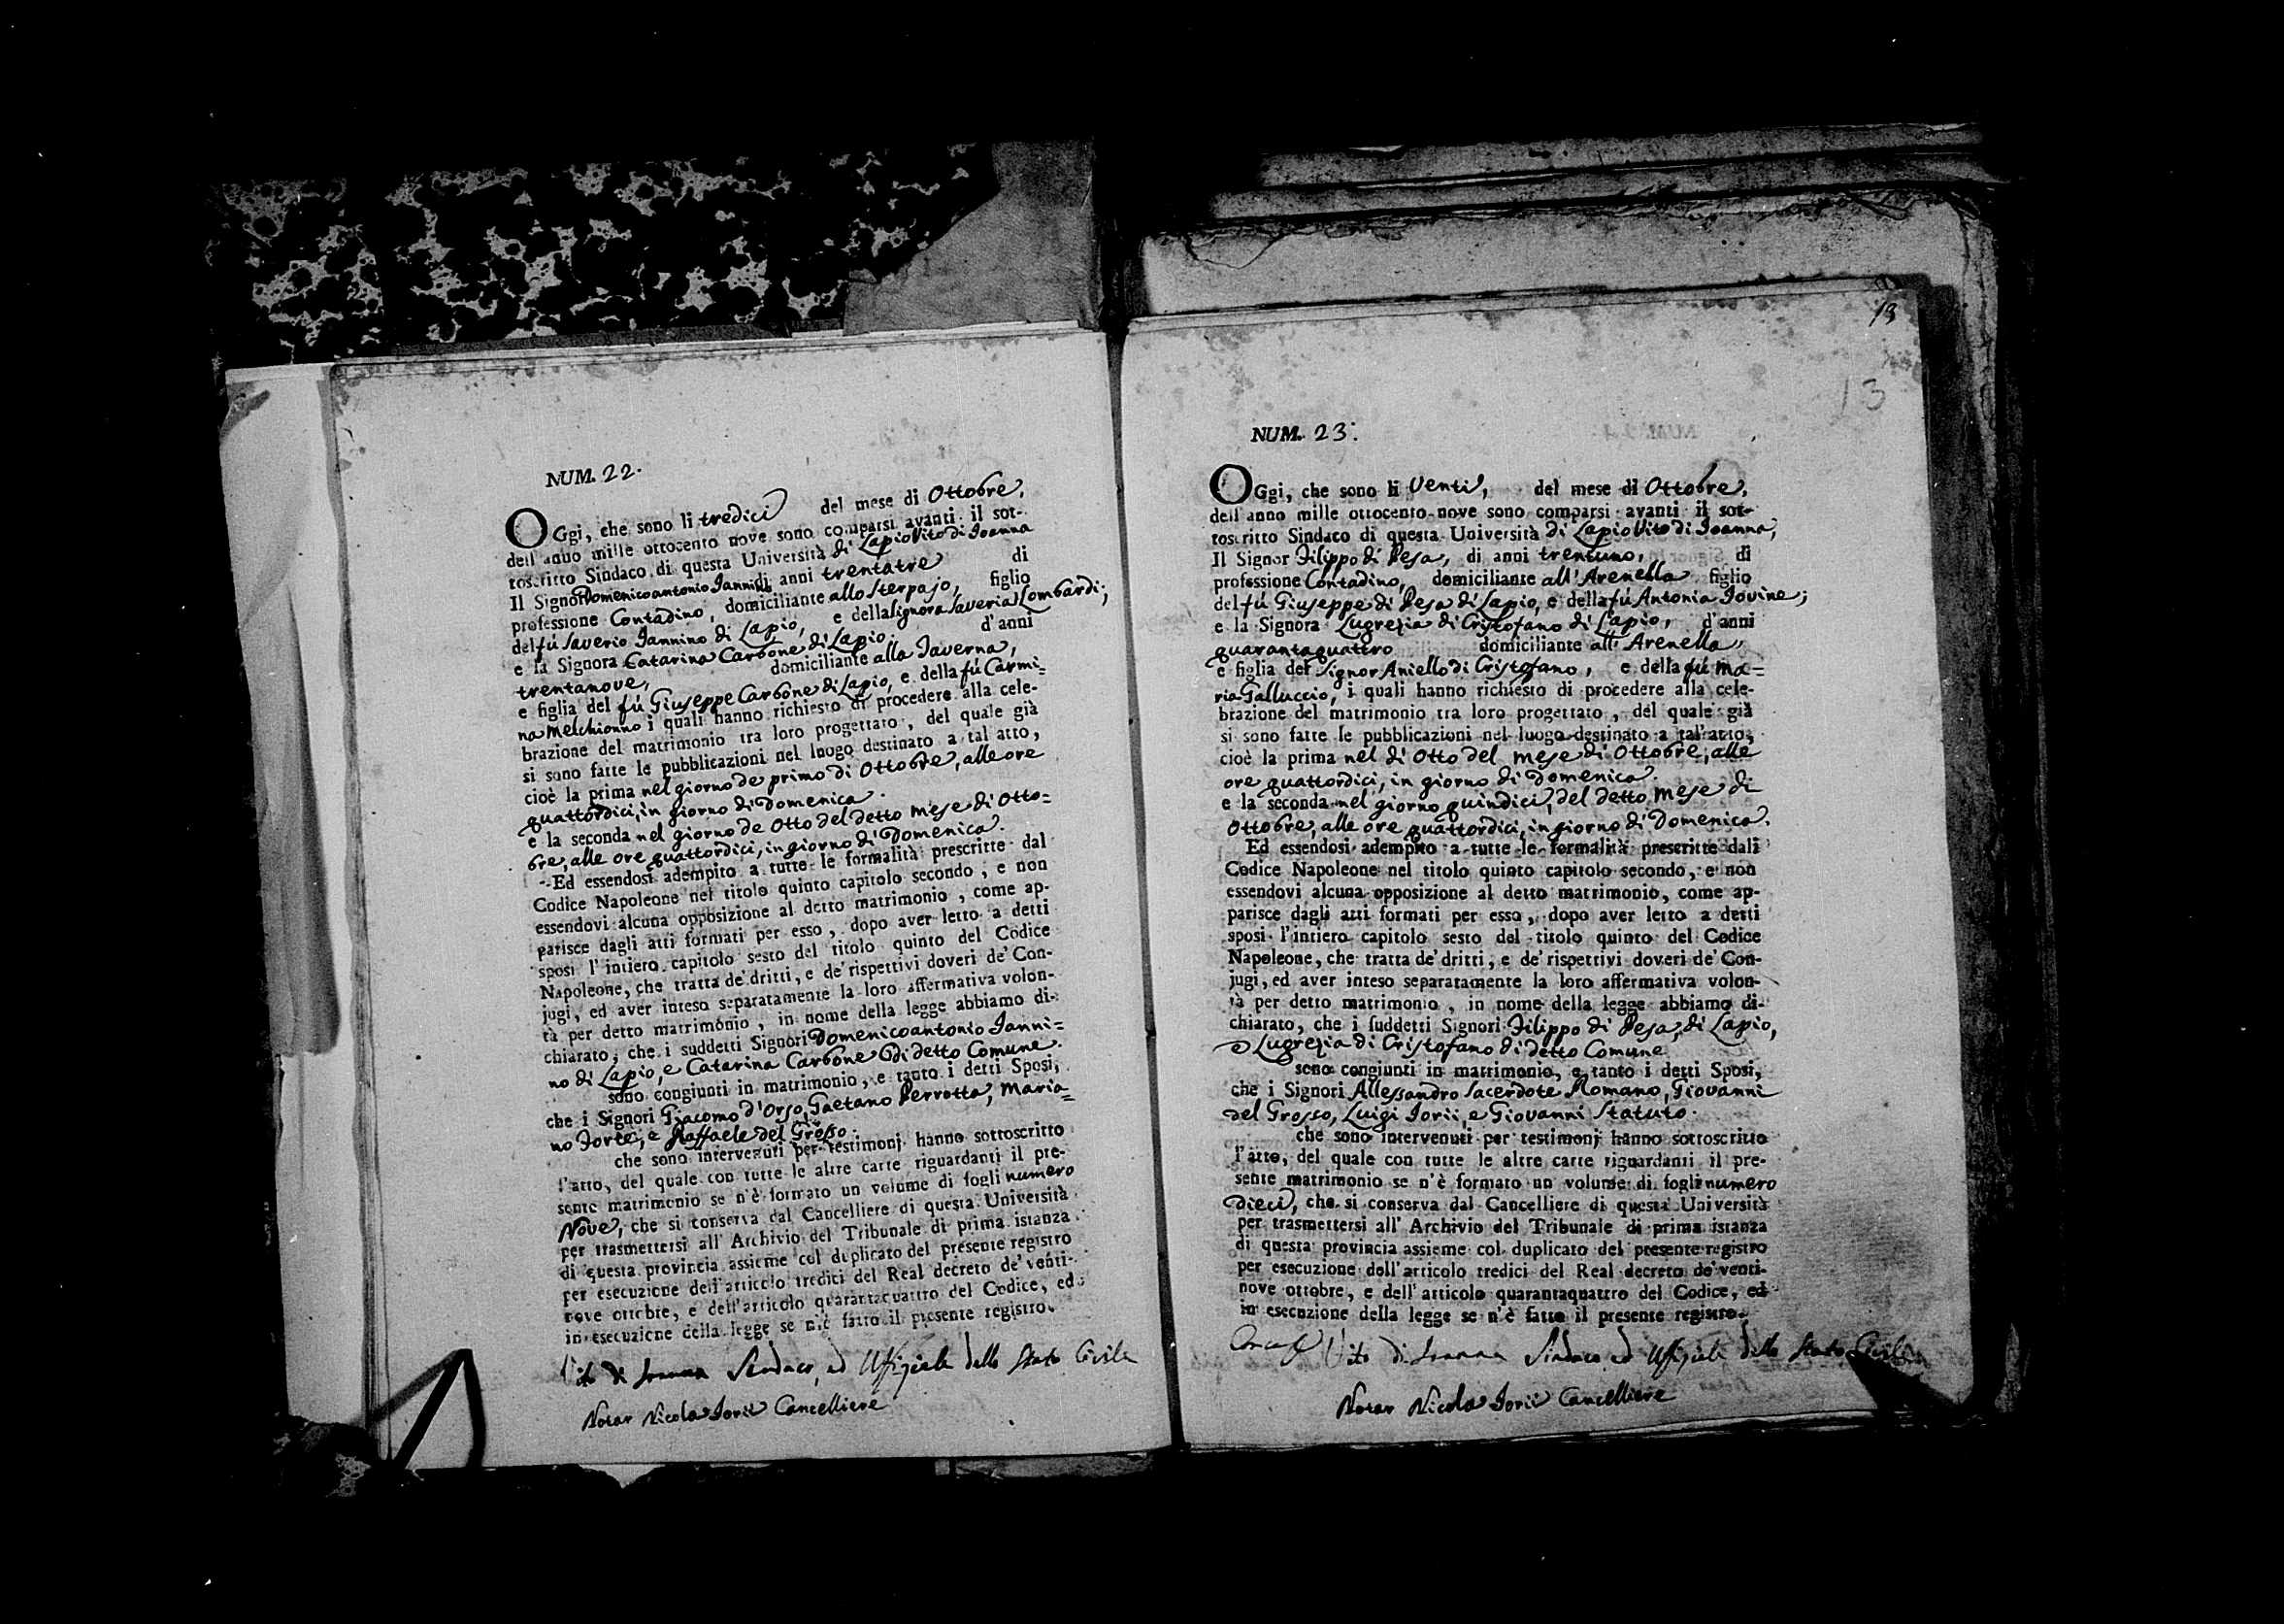 NUM. 22.
OGgi, che sono li tredici del mese di Ottobre,
dell'anno mille ottocento nove sono comparsi avanti il sot-
toscritto Sindaco di questa Università di Lapio Vito di Ioanna
Il Signor Domenicoantonio Iannino di anni trentatre di
professione Contadino, domiciliante allo Sterpajo, figlio
del fú Saverio Iannino di Lapio, e della Signora Saveria Lombardi;
e la Signora Catarina Carbone di Lapio. d'anni
trentanove, domiciliante alla Taverna,
e figlia del fú Giuseppe Carbone di Lapio, e della fú Carmi=
na Melchionno i quali hanno richiesto di procedere alla cele-
brazione del matrimonio tra loro progettato, del quale già
si sono fatte le pubblicazioni nel luogo destinato a tal atto,
cioè la prima nel giorno de primo di Ottobre, alle ore
quattordici, in giorno di Domenica.
e la seconda nel giorno de Otto del detto mese di Otto=
bre, alle ore quattordici, in giorno di Domenica.
Ed essendosi adempito a tutte le formalità prescritte dal
Codice Napoleone nel titolo quinto capitolo secondo, e non
essendovi alcuna opposizione al detto matrimonio, come ap-
parisce dagli atti formati per esso, dopo aver letto a detti
sposi l'intiero capitolo sesto del titolo quinto del Codice
Napoleone, che tratta de' dritti, e de' rispettivi doveri de' Con-
jugi, ed aver inteso separatamente la loro affermativa volon-
tà per detto matrimonio, in nome della legge abbiamo di-
chiarato, che i suddetti Signori Domenicoantonio Ianni=
no di Lapio, e Catarina Carbone di detto Comune.
sono congiunti in matrimonio, e tanto i detti Sposi,
che i Signori Giacomo d'Orso, Gaetano Perrotta, Maria=
no Forte, e Raffaele del Grosso.
che sono intervenuti per testimonj hanno sottoscritto
l'atto, del quale con tutte le altre carte riguardanti il pre-
sente matrimonio se n'è formato un volume di fogli numero
Nove, che si conserva dal Cancelliere di questa Università
per trasmettersi all' Archivio del Tribunale di prima istanza
di questa provincia assieme col duplicato del presente registro
per esecuzione dell'articolo tredici del Real decreto de' venti-
nove ottobre, e dell'articolo quarantaquattro del Codice, ed
in esecuzione della legge se n'è fatto il presente registro.
Vito di Ioanna Sindaco, ed Uffiziale dello Stato Civile
Notar Nicola Iorii Cancelliere
13
13
NUM. 23.
OGgi, che sono li Venti, del mese di Ottobre,
dell'anno mille ottocento nove sono comparsi avanti il sot-
toscritto Sindaco di questa Università di Lapio Vito di Ioanna,
Il Signor Filippo di Pesa, di anni trentuno, di
professione Contadino, domiciliante all'Arenella figlio
del fú Giuseppe di Pesa di Lapio, e della fú Antonia Iovine;
e la Signora Lugrezia di Cristofano di Lapio, d'anni
quarantaquattro domiciliante all' Arenella,
e figlia del Signor Aniello di Cristofano, e della fú Ma=
ria Galluccio, i quali hanno richiesto di procedere alla cele-
brazione del matrimonio tra loro progettato, del quale già
si sono fatte le pubblicazioni nel luogo destinato a tal'atto,
cioè la prima nel di Otto del mese di Ottobre, alle
ore quattordici, in giorno di Domenica.
e la seconda nel giorno quindici, del detto mese di
Ottobre, alle ore quattordici, in giorno di Domenica.
Ed essendosi adempito a tutte le formalità prescritte dal
Codice Napoleone nel titolo quinto capitolo secondo, e non
essendovi alcuna opposizione al detto matrimonio, come ap-
parisce dagli atti formati per esso, dopo aver letto a detti
sposi l'intiero capitolo sesto del titolo quinto del Codice
Napoleone, che tratta de' dritti, e de' rispettivi doveri de' Con-
jugi, ed aver inteso separatamente la loro affermativa volon-
tà per detto matrimonio, in nome della legge abbiamo di-
chiarato, che i suddetti Signori Filippo di Pesa, di Lapio,
e Lugrezia di Cristofano di detto Comune
sono congiunti in matrimonio, e tanto i detti Sposi,
che i Signori Allessandro Sacerdote Romano, Giovanni
del Grosso, Luigi Iorii, e Giovanni Statuto.
che sono intervenuti per testimonj hanno sottoscritto
l'atto, del quale con tutte le altre carte riguardanti il pre-
sente matrimonio se n'è formato un volume di fogli numero
Dieci, che si conserva dal Cancelliere di questa Università
per trasmettersi all' Archivio del Tribunale di prima istanza
di questa provincia assieme col duplicato del presente registro
per esecuzione dell'articolo tredici del Real decreto de' venti-
nove ottobre, e dell'articolo quarantaquattro del Codice, ed
in esecuzione della legge se n'è fatto il presente registro.
Vito di Ioanna Sindaco, ed Uffiziale dello Stato Civile
Notar Nicola Iorii Cancelliere